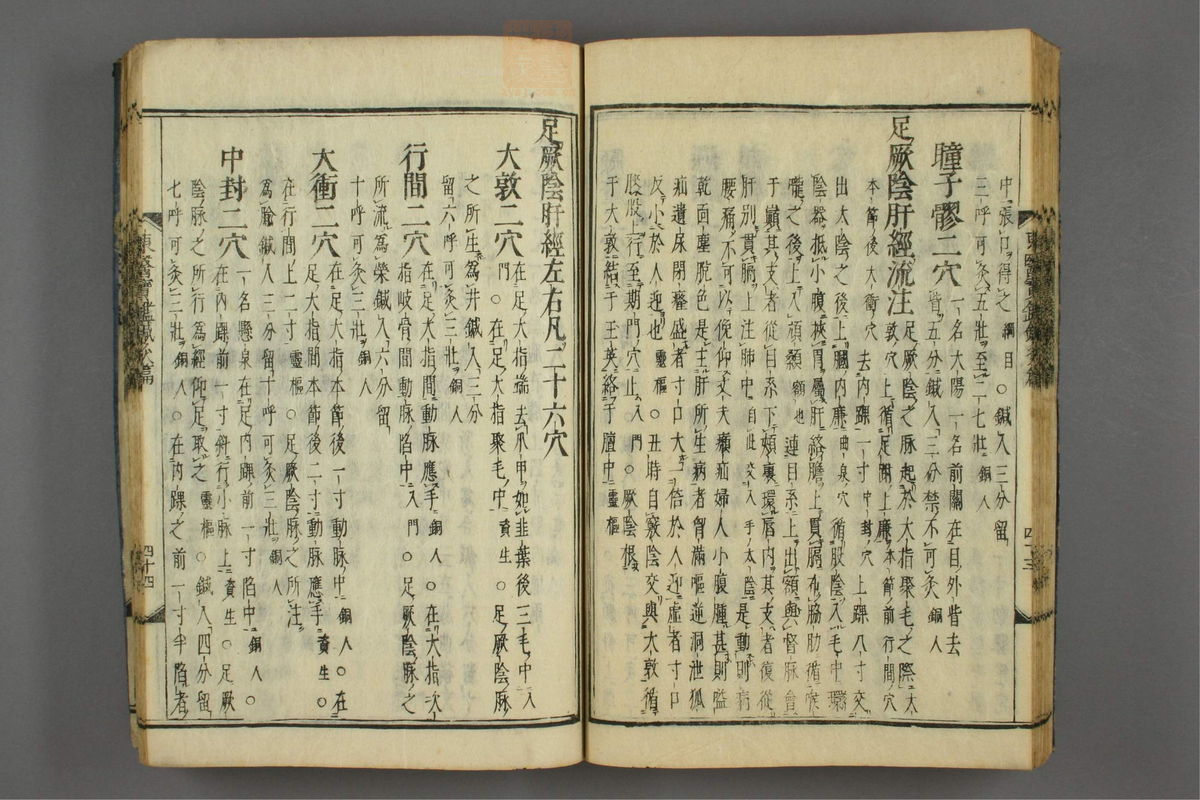 中張口得之綱目○鍼入三分留
三呼可灸五壯至二七壯銅人
瞳子髎二穴一名大陽一名前關在目外眥去
眥五分鍼入三分禁不可灸銅人
足厥陰肝經流注足厥陰之脉起於大指聚毛之際大
敦穴上循足跗上廉本節前行間穴
本節後大衝穴去內踝一寸中封穴上踝八寸交
出太陰之後上膕內廉曲泉穴循股陰入毛中環
陰器抵小腹挾胃屬肝絡膽上貫膈布脇肋循喉
嚨之後上入頏顙顙也連目系上出額與督脉會
于巓其支者從目系下頰裏環唇內其支者復從
肝別貫膈上注肺中自此交入手太陰是動則病
腰痛不可以俛仰丈夫㿗疝婦人小腹腫甚則嗌
乾面塵脫色是主肝所生病者胷滿嘔逆洞泄狐
疝遺尿閉癃盛者寸口大一倍於人迎虛者寸口
反小於人迎也靈樞○丑時自敦陰交與大敦循
股上行至期門穴止入門○厥陰根
于大敦結于玉英絡于膻中靈樞
四十三
東醫寶鑑鍼灸篇
四十四
足厥陰肝經左右凡二十六穴
大敦二穴在足大指端去爪甲如韭葉後三毛中入
門○在足大指聚毛中資生○足厥陰脉
之所生爲井鍼入三分
留六呼可灸三壯銅人
行間二穴在足大指間動脉應手銅人○在大指次
指岐骨間動脉陷中入門○足厥陰脉之
所流爲滎鍼入六分留
十呼可灸三壯銅人
大衝二穴在足大指本節後一寸動脉中銅人○在
足大指間本節後二寸動脉應手資生○
在行間上二寸靈樞○足厥陰脉之所注
爲腧鍼入三分留十呼可灸三壯銅人
中封二穴一名懸泉在足內踝前一寸陷中銅人○
在內踝前一寸斜行小脉上資生○足厥
陰脉之所行爲經仰足取之靈樞○鍼入四分留
七呼可灸三壯銅人○在內踝之前一寸半陷者